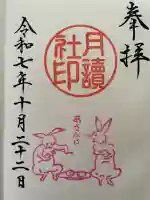 奉拝
月讀
社印
令和七年十月二十二日